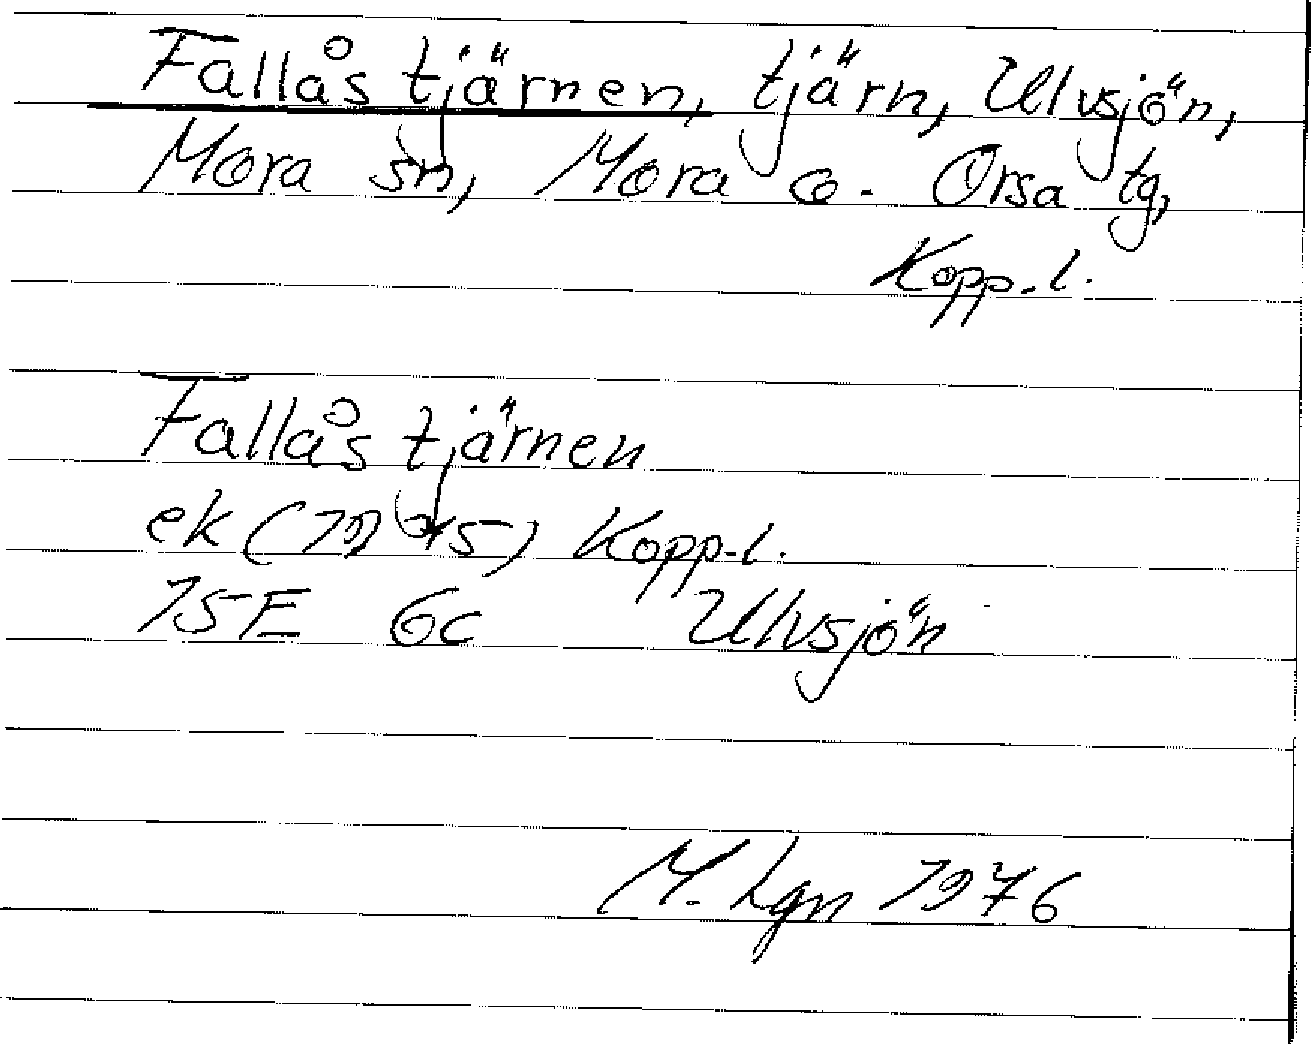 Fallåstjärnen, tjärn, Ulvsjön,
Mora sn, Mora o. Orsa tg,
Kopp. l.
Fallåstjärnen
ek Kopp. l.
15E 6c Ulvsjön
M. Lgn 1976